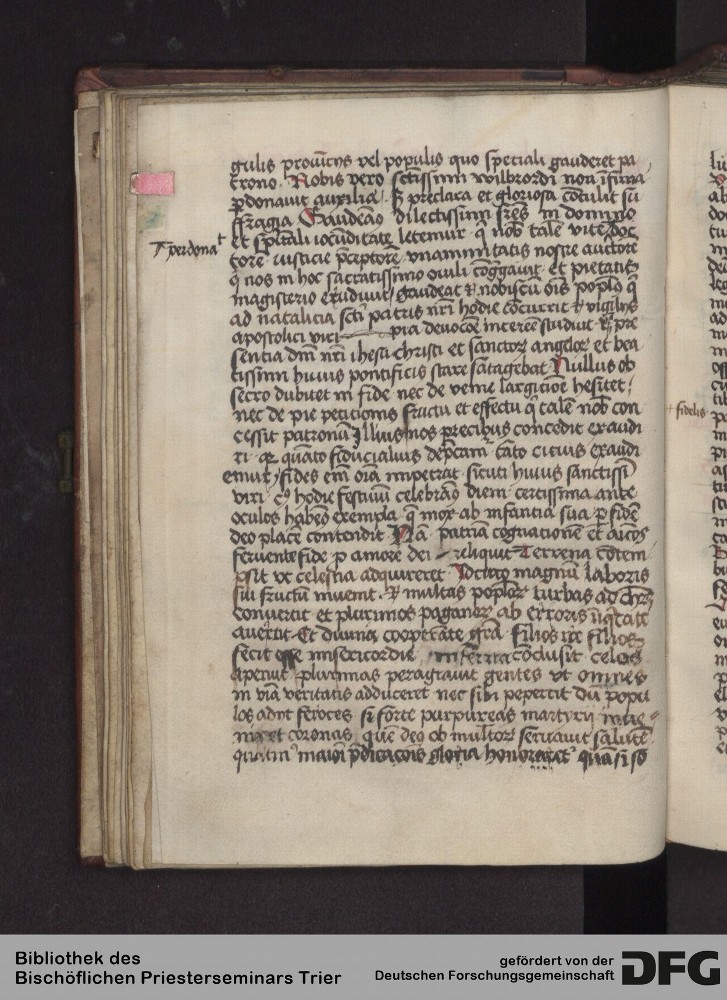 gulis prouīcijs vel populis quo speciali gauderet pa
trono . Nobis vero sctīssimi wilbrordi non īfima
ꝑdonauit auxilia . sꝫ preclara et gloriosa cōtulit suf
fragia Gaudeāꝰ dilectissimi frēs in domino
et spūali iocūditate letemur . ꝙ nob tale vite doc
perdonat
tore iusticie p̄ceptore vnanimitatis nostre auctore
ꝙ nos in hoc sacratissimo ouili cōggauit et pietatis
magisterio erudiuit / gaudeat et nobiscū oīs popl̄s ꝙ
ad natalicia scti patris nr̄i hodie cōcurrit et vigilijs
apostolici viri pia deuocōe int̄ee studuit
sentia dn̄i nr̄i ihesu christi et sanctoꝝ angeloꝝ et bea
tissimi huius pontificis stare satagebat Nullus ob
secro dubitet in fide nec de venie largitiōe hesitet /
nec de pie petitionis fructu et effectu ꝙ tale nob con
cessit patronū Illius nos precibus concedit exaudi
ri quāto fiducialius dep̄cam tāto citius exaudi
emur / fides em̄ oīa impetrat sicuti huius sanctissi
viri hodie festiuū celebrāꝰ diem certissima ante
oculos habeꝰ exempla . ꝙ mox ab infantia sua ꝑ fidē
deo place contendit Nā patriā cognationē et aīcos
feruente fide ꝓ amore dei reliquit Terrena cōtem
psit vt celestia adquireret Idcirco magnū laboris
sui fructū inuenit . et multas popl̄oꝝ turbas ad
conuertit et plurimos paganoꝝ ab erroris
auertit Et diuina cooperāte grā filios ire filios
fecit esse misericordie inferna cōclusit celos
aperuit plurimas peragrauit gentes vt omnes
in viā veritatis adduceret nec sibi pepercit dū popu
los adijt feroces si forte purpureas martyrij inue
niret coronas . quē deꝰ ob multoꝝ seruauit salutē
maiori p̄dicacōis gloria honoraret quā si
fidelis
Bibliothek des
Bischöflichen Priesterseminars Trier
gefördert von der
Deutschen Forschungsgemeinschaft
DFG